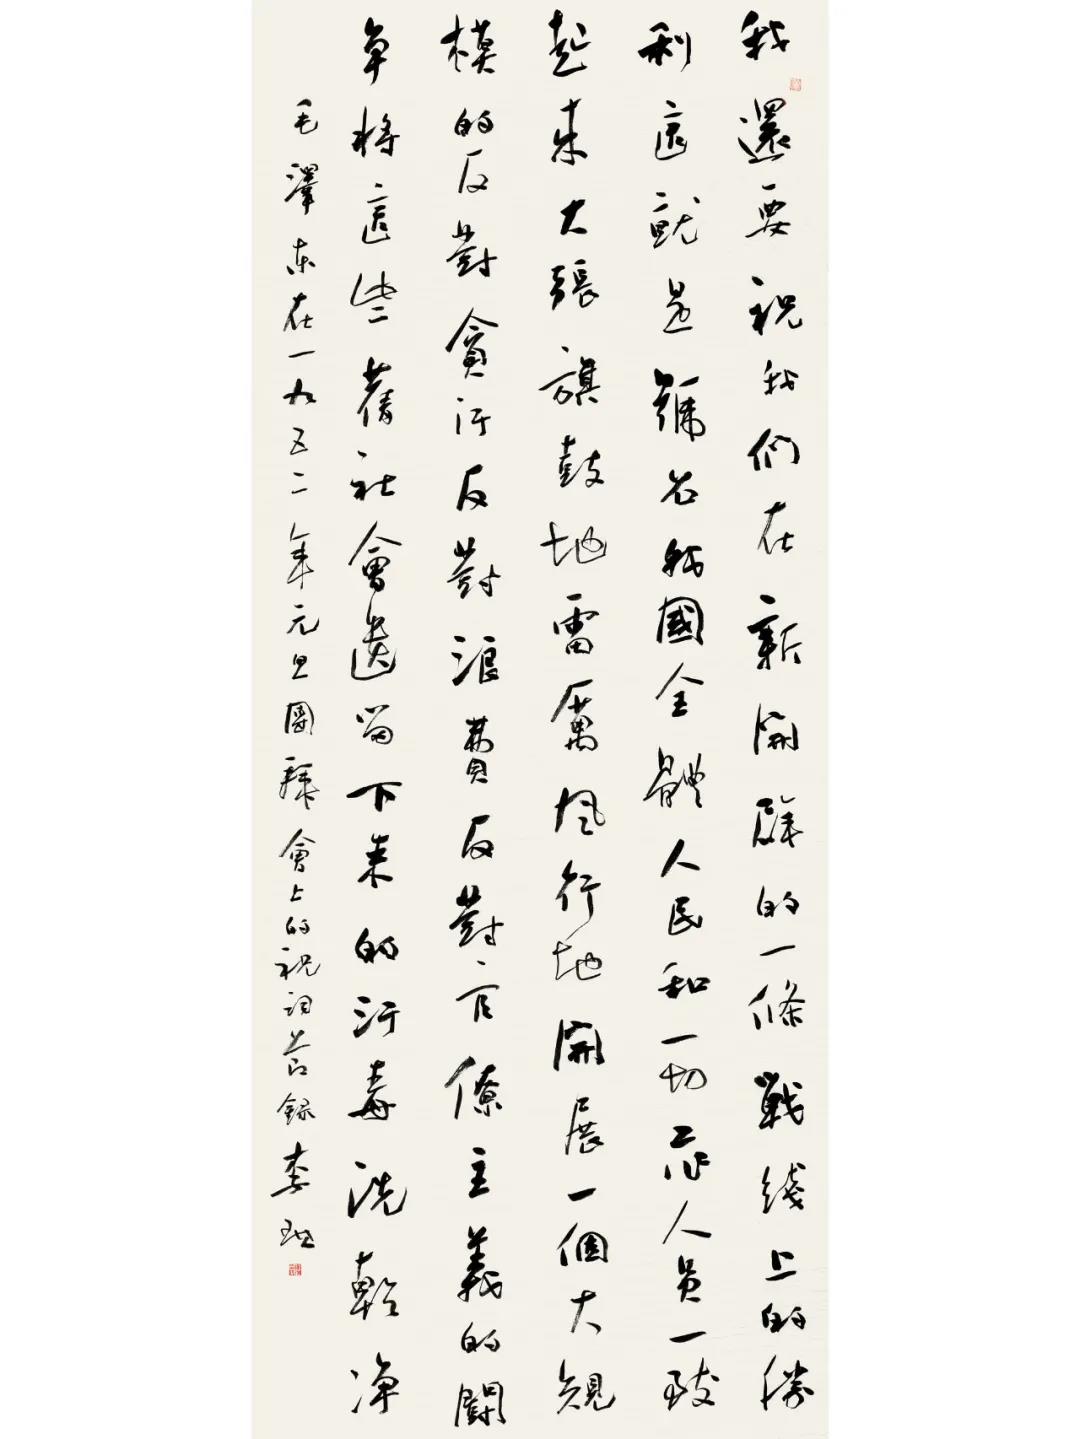 我還要祝我們在新開辟的一條戰綫上的勝
利這就是號召我國全體人民和一切工作人員一致
起來大張旗鼓地雷厲風行地開展一個大規
模的反對貪污反對浪費反對官僚主義的鬭
争將這些舊社會遺留下來的污毒洗乾净
毛澤東在一九五二年元旦團拜會上的祝詞節録李